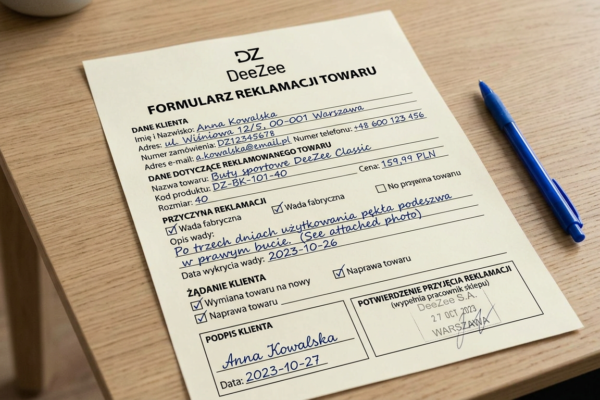 DZ
DeeZee
FORMULARZ REKLAMACJI TOWARU
DANE KLIENTA
Imię i Nazwisko: Anna Kowalska
Adres: ul. Wiśniowa 12/5, 00-001 Warszawa
Numer zamówienia: DZ12345678
Adres e-mail: a.kowalska@email.pl Numer telefonu: +48 600 123 456
DANE DOTYCZĄCE REKLAMOWANEGO TOWARU
Nazwa towaru: Buty sportowe DeeZee Classic
Kod produktu: DZ-BK-101-40 Cena: 159,99 PLN
Rozmiar: 40
PRZYCZYNA REKLAMACJI
Wada fabryczna Wada fabryczna No towaru
Opis wady:
Po trzech dniach użytkowania pękła podeszwa
w prawym bucie. (See attached photo)
Data wykrycia wady: 2023-10-26
ŻĄDANIE KLIENTA
Wymiana towaru na nowy Naprawa towaru
Naprawa towaru
PODPIS KLIENTA
Anna Kowalska
Data: 2023-10-27
POTWIERDZENIE PRZYJĘCIA REKLAMACJI
(wypełnia pracownik sklepu)
DeeZee S.A.
27 OCT 2023
WARSZAWA